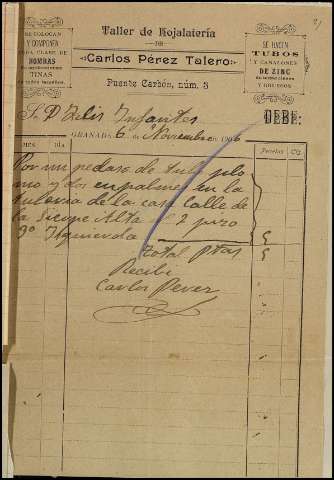 Taller de Hojalatería
DE
Carlos Pérez Talero
Puente Carbón, núm. 3
SE COLOCAN
Y COMPONEN
TODA CLASE DE
BOMBAS
TINAS
SE HACEN
TUBOS
Y CANALONES
DE ZINC
DE TODAS CLASES
Y GRUESOS
21
S. D. Felis Infantes
DEBE:
GRANADA 6 de Noviembre 1906
MES DÍA Pesetas Cts.
Por un pedaso de tubo plo
mo y dos enpalmes en la
tuberia de la casa Calle de
la Sierpe Alta el 2 piso
3º Izquierda 5
total ptas 5
Recibi
Carlos Perez